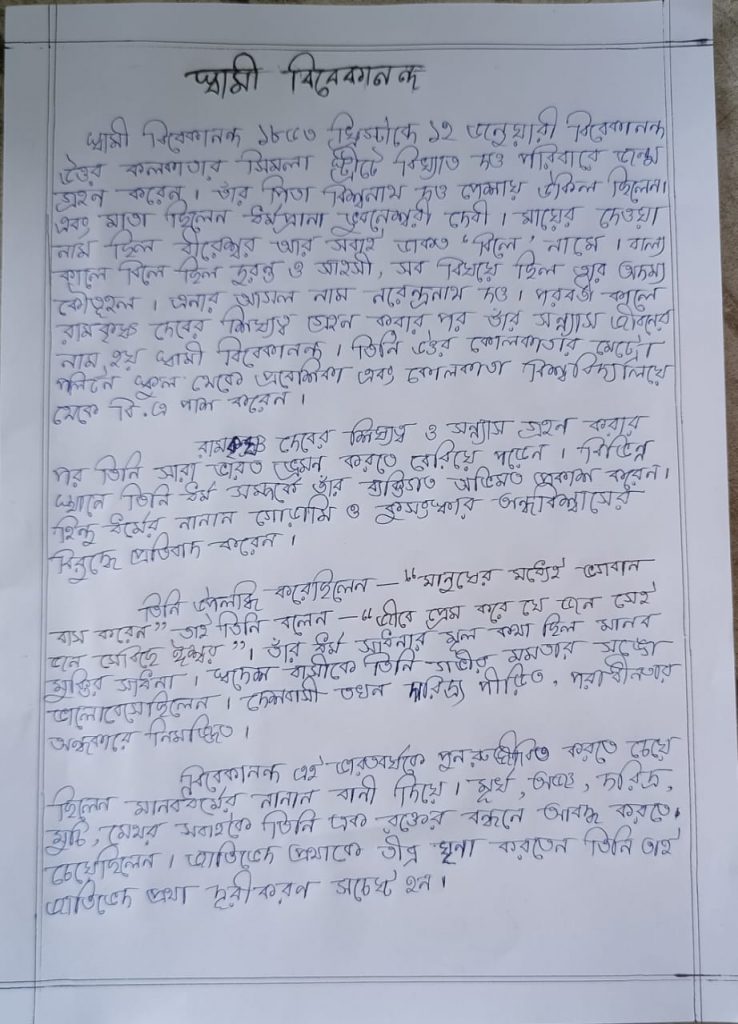 স্বামী বিবেকানন্দ
স্বামী বিবেকানন্দ ১৮৬৩ খ্রিস্টাব্দে ১২ জানুয়ারী বিবেকানন্দ
উত্তর কলকাতার সিমলা স্ট্রীটে বিখ্যাত দত্ত পরিবারে জন্ম
গ্রহন করেন। তাঁর পিতা বিশ্বনাথ দত্ত পেশায় উকিল ছিলেন।
এবং মাতা ছিলেন ধর্মপ্রানা ভুবনেশ্বরী দেবী। মায়ের দেওয়া
নাম ছিল বীরেশ্বর আর সবাই ডাকত 'বিলে' নামে। বাল্য
কালে বিলে ছিল দুরন্ত ও সাহসী, সব বিষয়ে ছিল তার অদম্য
কৌতূহল। এনার আসল নাম নরেন্দ্রনাথ দত্ত। পরবর্তী কালে
রামকৃষ্ণ দেবের শিষ্যত্ব গ্রহন করার পর তাঁর সন্ন্যাস জীবনের
নাম হয় স্বামী বিবেকানন্দ। তিনি উত্তর কোলকাতার মেট্রো
পলিটন স্কুল থেকে প্রবেশিকা এবং কোলকাতা বিশ্ববিদ্যালয়ে
থেকে বি.এ পাশ করেন।
রামকৃষ্ণ দেবের শিষ্যত্ব ও সন্ন্যাস গ্রহন করার
পর তিনি সারা ভারত ভ্রমন করতে বেরিয়ে পড়েন। বিভিন্ন
স্থানে তিনি ধর্ম সম্পর্কে তাঁর ব্যক্তিগত অভিমত প্রকাশ করেন।
হিন্দু ধর্মের নানান গোড়ামি ও কুসংস্কার অন্ধবিশ্বাসের
বিরুদ্ধে প্রতিবাদ করেন।
তিনি উপলব্ধি করেছিলেন — "মানুষের মধ্যেই ভগবান
বাস করেন" তাই তিনি বলেন — "জীবে প্রেম করে যে জন সেই
জন সেবিছে ঈশ্বর"। তাঁর ধর্ম সাধনার মূল কথা ছিল মানব
মুক্তির সাধনা। স্বদেশ বাসীকে তিনি গভীর মমতার সঙ্গে
ভালোবেসেছিলেন। দেশবাসী তখন দারিদ্র্য পীড়িত, পরাধীনতার
অন্ধকারে নিমজ্জিত।
বিবেকানন্দ এই ভারতবর্ষকে পুনরুজ্জীবিত করতে চেয়ে
ছিলেন মানবধর্মের নানান বানী দিয়ে। মূর্খ, অজ্ঞ, দরিদ্র,
মুচি, মেথর সবাইকে তিনি এক রক্তের বন্ধনে আবদ্ধ করতে
চেয়েছিলেন। জাতিভেদ প্রথাকে তীব্র ঘৃনা করতেন তিনি তাই
জাতিভেদ প্রথা দূরীকরণ সচেষ্ট হন।